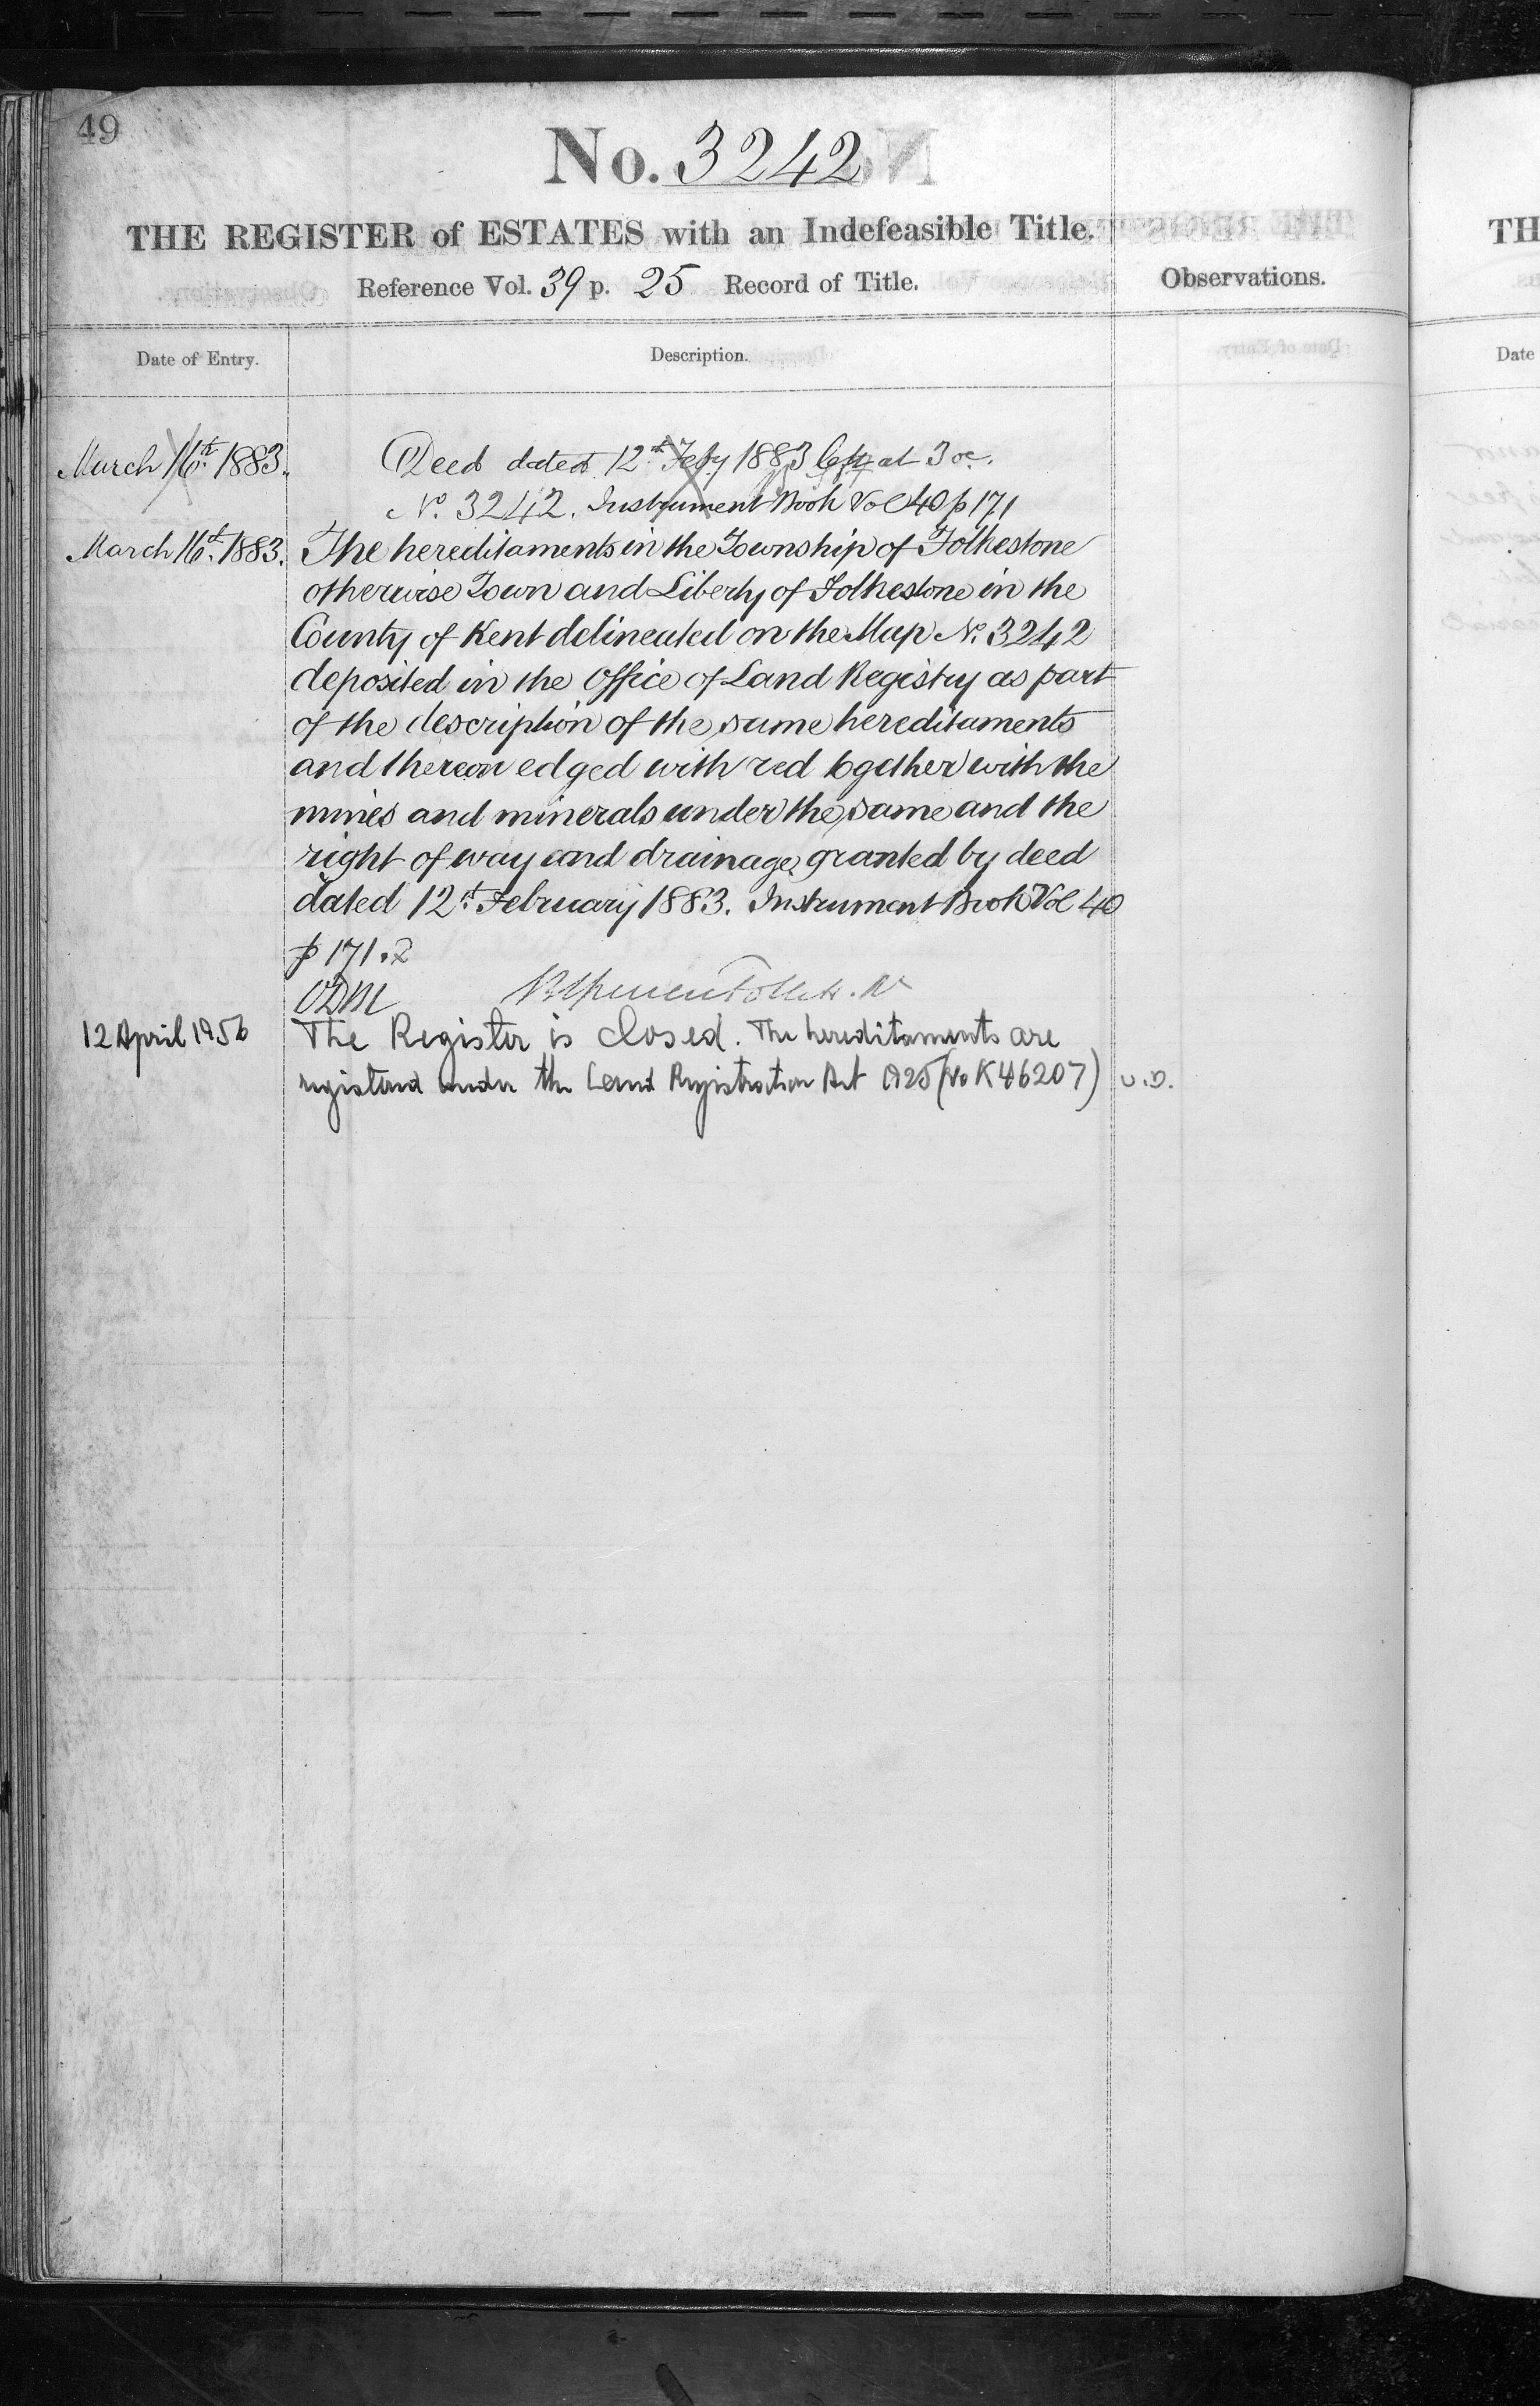 49
No. 3242
THE REGISTER of ESTATES with an Indefeasible Title.
Reference Vol. 39 p. 25 Record of Title.
Observations.
Date of Entry.
Description.
March 16th 1883.
Deed dated 12th Feby 1883 at 3 oc.
No. 3242. Instrument Book Vol 40 p 171
March 16th 1883.
The hereditaments in the Township of Folkestone
otherwise Town and Liberty of Folkestone in the
County of Kent delineated on the Map No. 3242
deposited in the Office of Land Registry as part
of the description of the same hereditaments
and thereon edged with red together with the
mines and minerals under the same and the
right of way and drainage granted by deed
dated 12th February 1883. Instrument Book Vol 40
p 171.
ODM
12 April 1956
The Register is closed. The hereditaments are
registered under the Land Registration Act 1925 (No K46207)
TH
Date